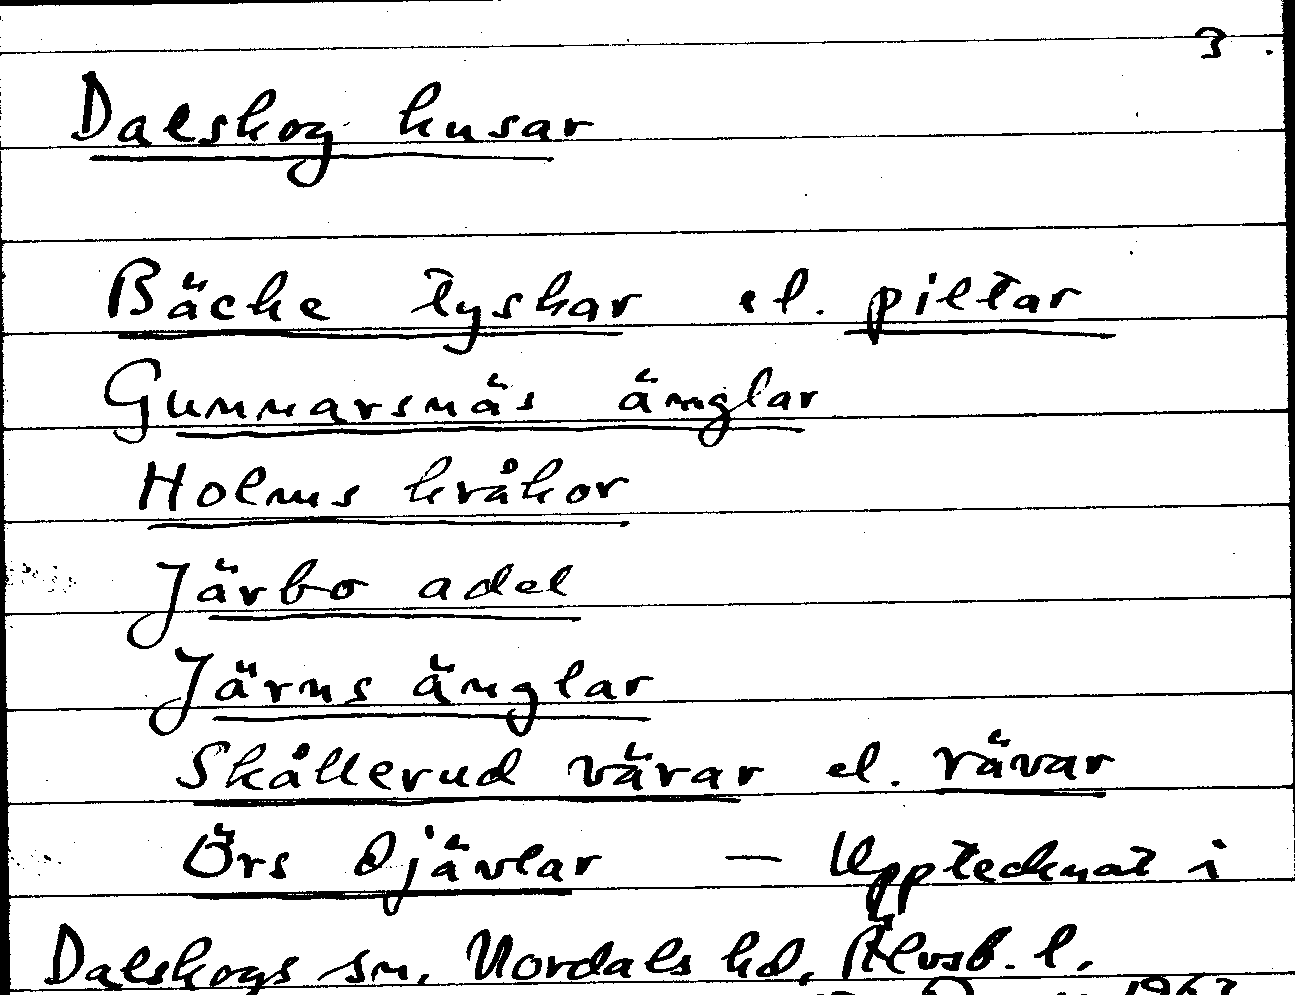 3.
Dalskog husar
Bäcke tyskar el. piltar
Gunnarsnäs änglar
Holms kråkor
Järbo adel
Järns änglar
Skållerud värar el. rävar
Örs djävlar — Upptecknat i
Dalskogs sn, Nordals hd, Älvsb. l.